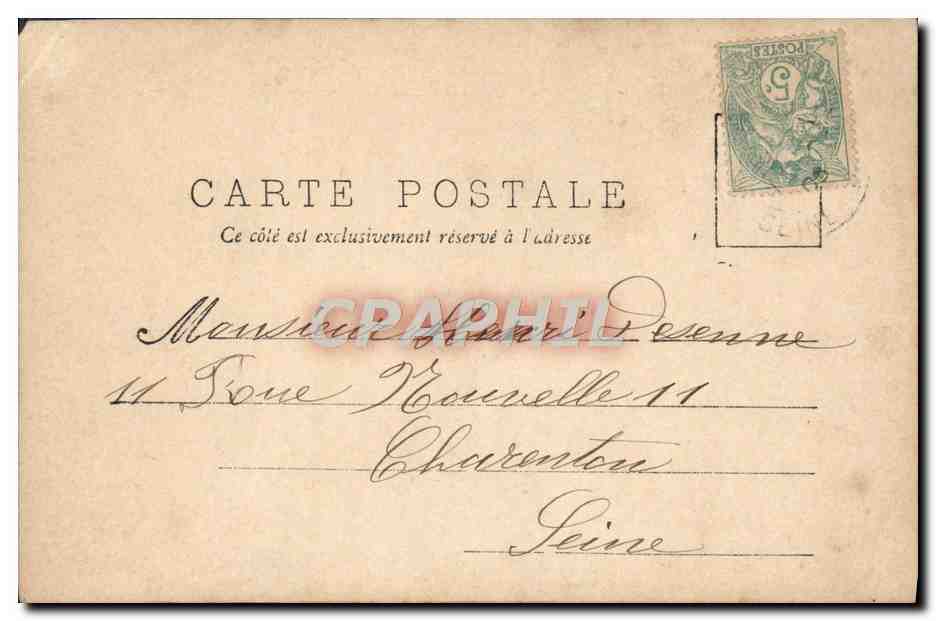 POSTES
5c
CARTE POSTALE
Ce côté est exclusivement réservé à l'adresse
SEINE
CPAPHIL
Monsieur Henri Desenne
11 Rue Nouvelle 11
Charenton
Seine